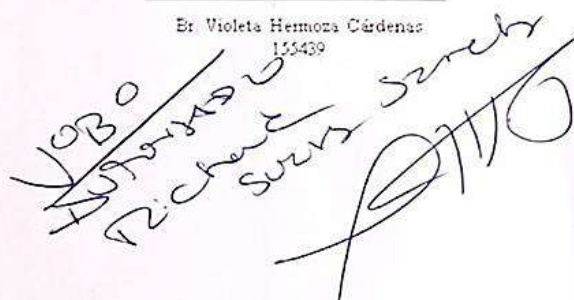 Br. Violeta Hermoza Cárdenas
155439
VOBO
Richard
Suarez Sanchez